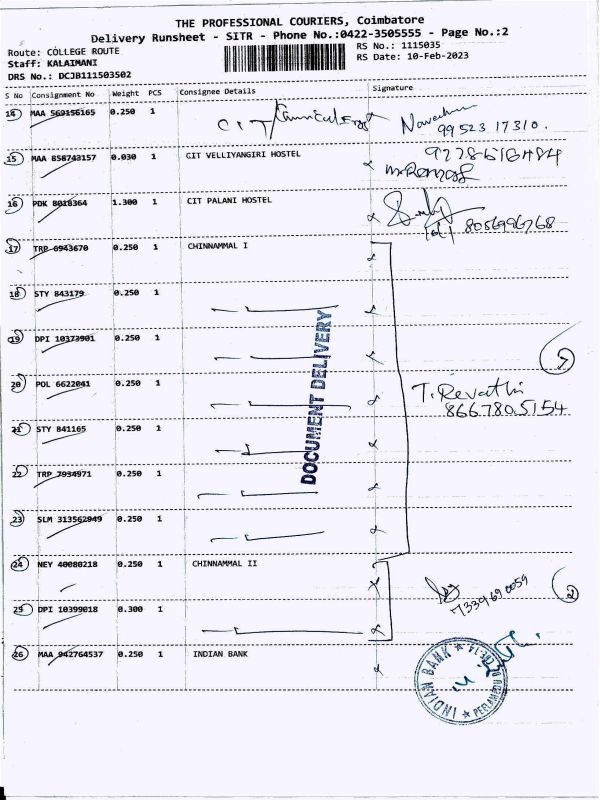 THE PROFESSIONAL COURIERS, Coimbatore
Delivery Runsheet - SITR - Phone No.:0422-3505555 - Page No.:2
Route: COLLEGE ROUTE
RS No.: 1115035
Staff: KALAIMANI
RS Date: 10-Feb-2023
DRS No.: DCJB111503502
S No Consignment No Weight PCS Consignee Details Signature
14 MAA 569156165 0.250 1 CIT
99523 17310.
15 MAA 858743157 0.030 1 CIT VELLIYANGIRI HOSTEL
16 PDK 8018364 1.300 1 CIT PALANI HOSTEL
8056996768
17 TRP 6943670 0.250 1 CHINNAMMAL I
18 STY 843179 0.250 1
19 DPI 10373901 0.250 1
7
20 POL 6622041 0.250 1
T. Revathi
866780 5154
21 STY 841165 0.250 1
22 TRP 7934971 0.250 1
23 SLM 313562949 0.250 1
DOCUMENT DELIVERY
24 NEY 40080218 0.250 1 CHINNAMMAL II
7339690059
2
25 DPI 10399018 0.300 1
26 MAA 942764537 0.250 1 INDIAN BANK
INDIAN BANK